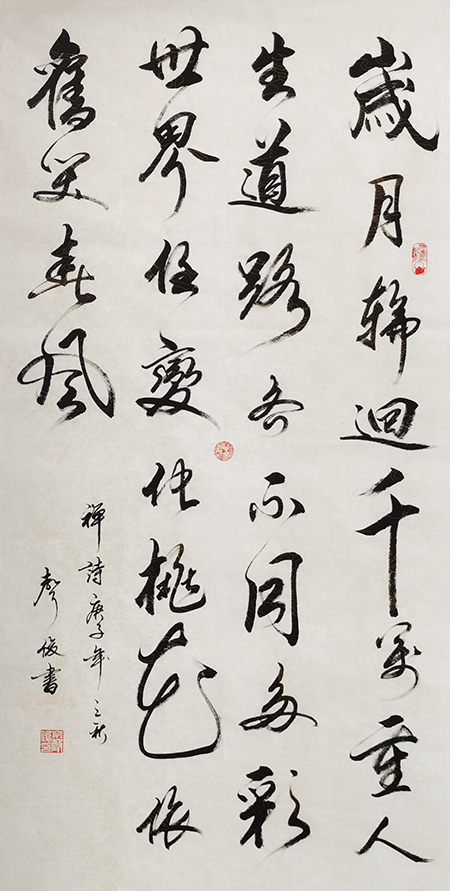 歲月輪迴千萬重人
生道路各不同多彩
世界任變化桃花依
舊笑春風
禪詩庚子年之秋
聲俊書